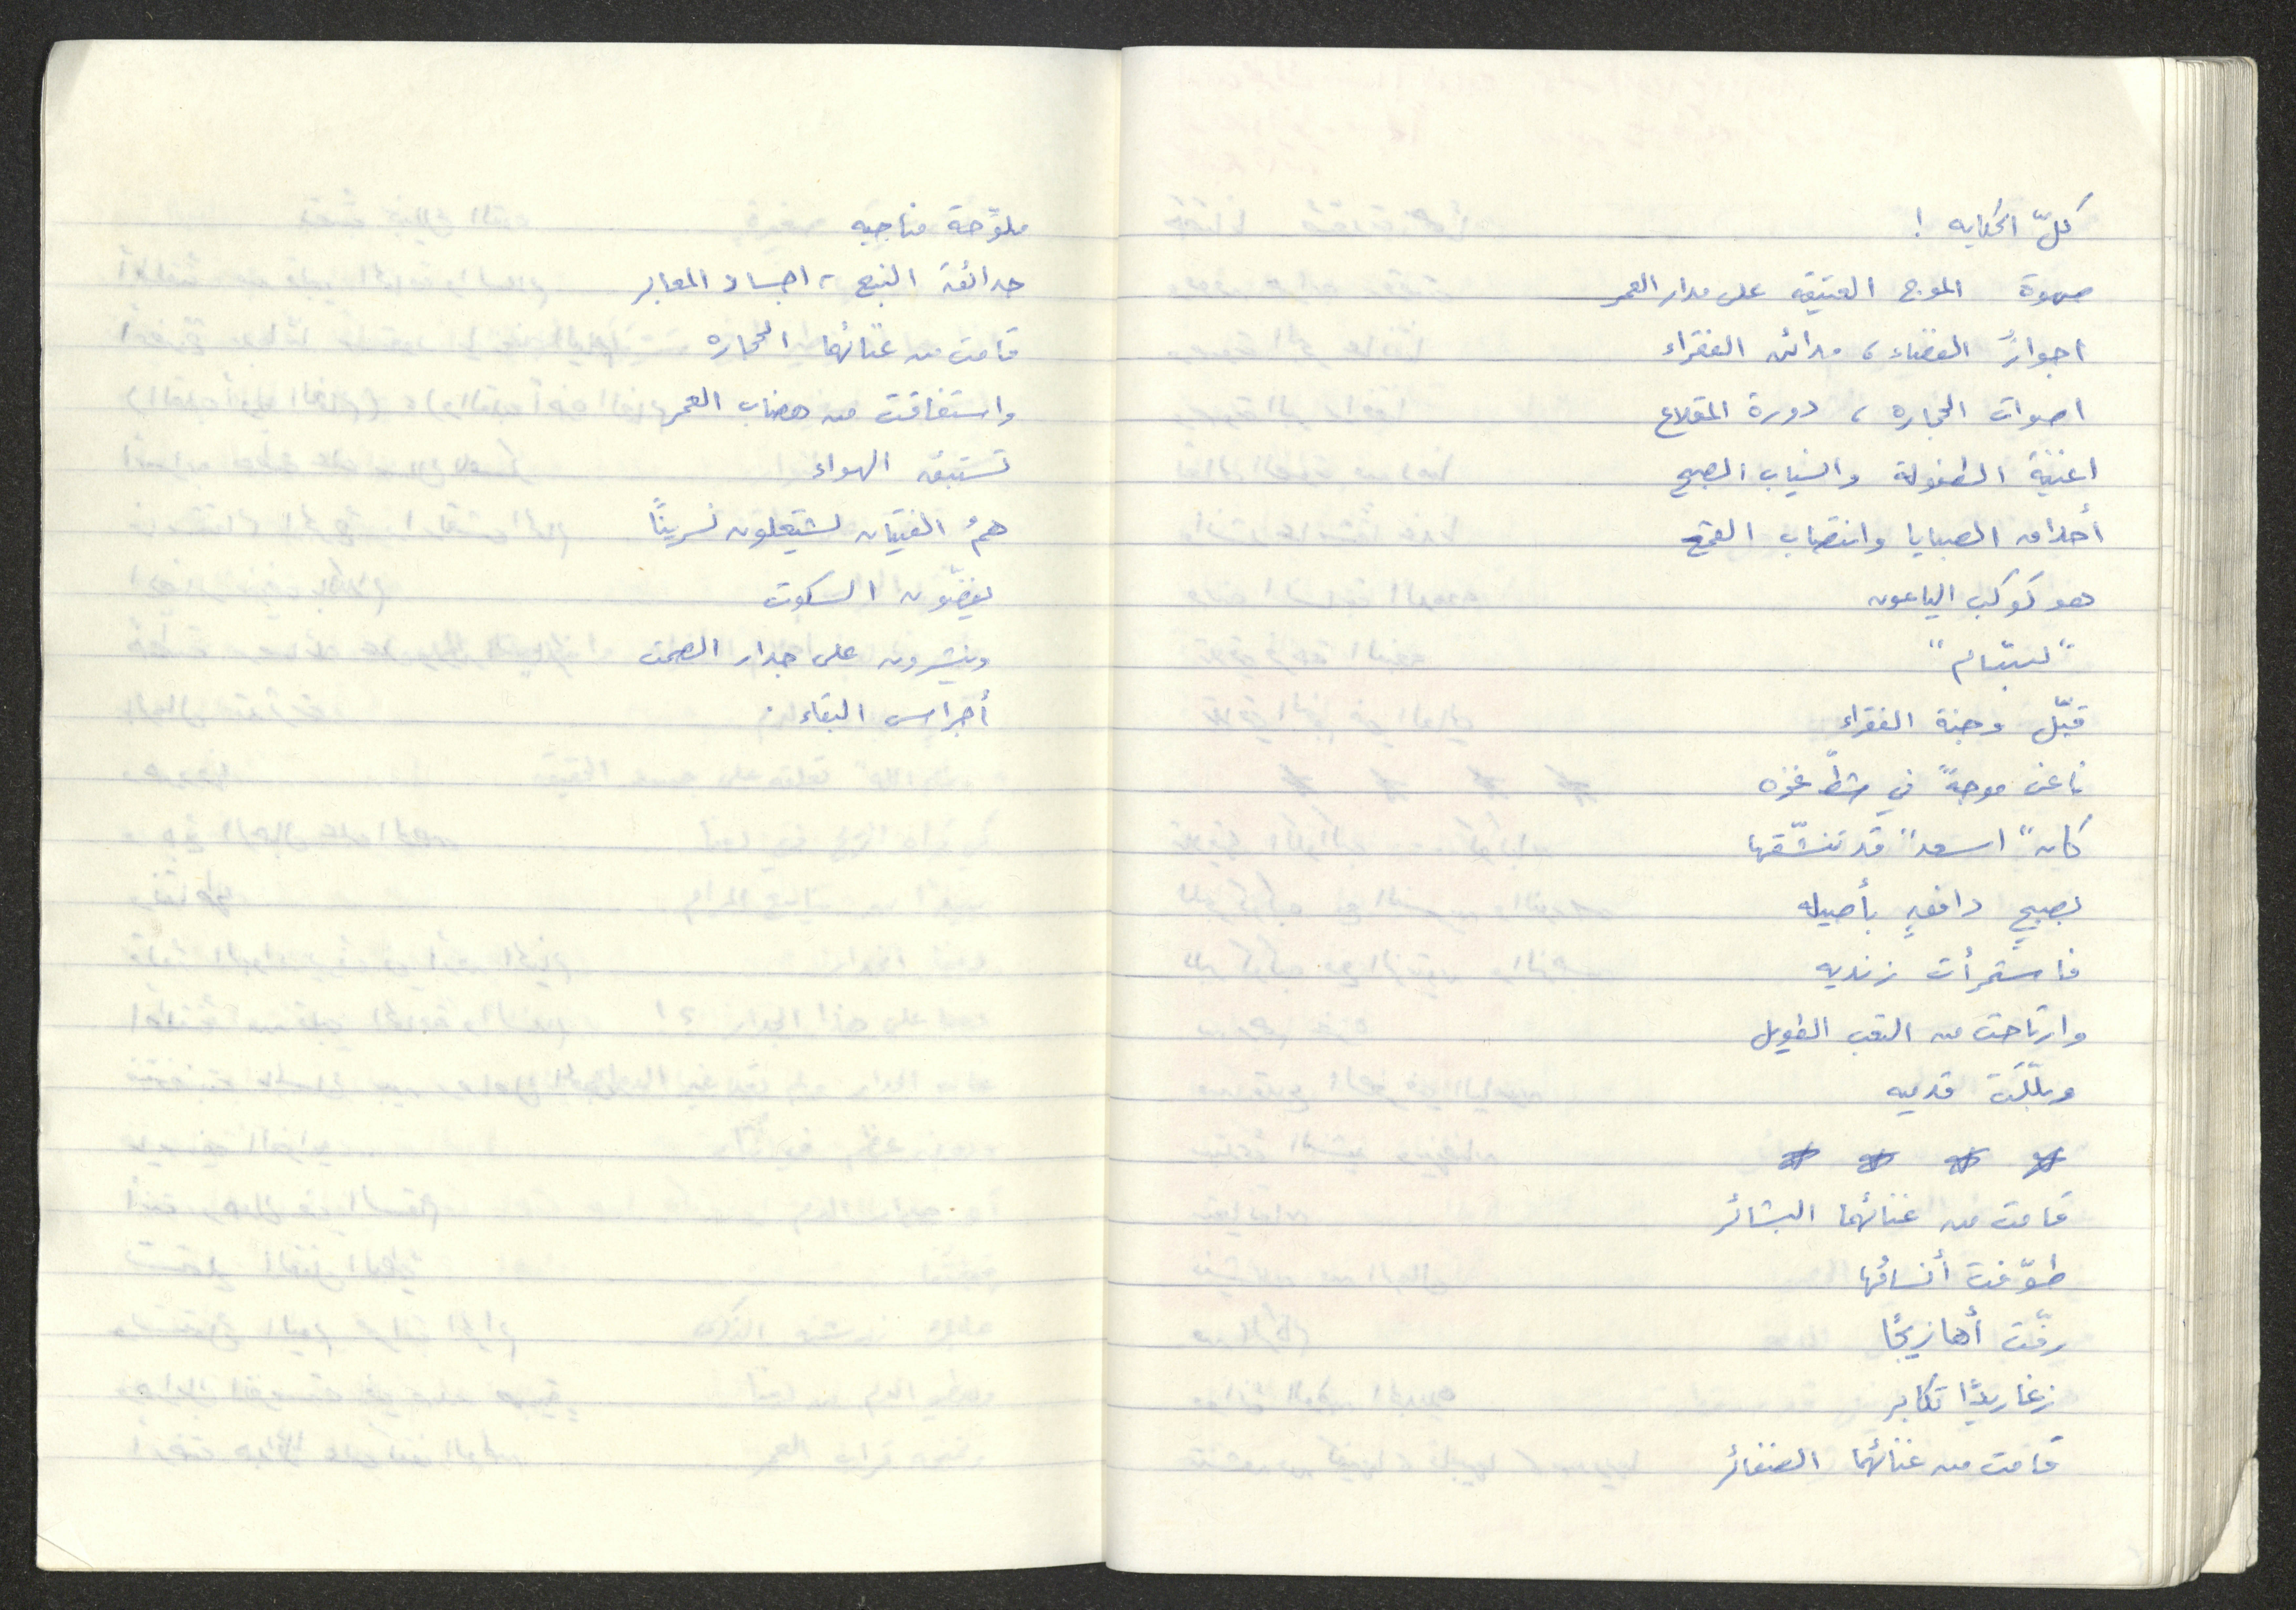 كلّ الحكايه !
صهوة الموج العتيق على مدار العمر
اجوازُ الفضاء، مدائن الفقراء
اصوات الحجاره، دورة المقلاع
اغنية الطفولة والشباب الصبح
أحداق الصبايا وانتصاب القمح
هو كوكب الياعون
"لبتسام"
قبّل وجنة الفقراء
ناغى موجةً في شطّ غزه
كان "اسعد" قد تنشّقها
بصبحٍ دافقٍ بأصيله
فاستمرأت زنديه
وارتاحت من التعب الطويل
وبلّلت قدميه
# # # #
قامت من غنائهما البشائر
طوّفت أنسامُها
رفّت أهازيجًا
زغاريدًا تكابر
قامت من غنائهما الضفائر
ملوّحة مناجيه
حدائق النبع، اجساد المعابر
قامت من غنائهما الحجاره
واستفاقت من هضاب العمر
تستبق الهواء
همُ الفتيان يشتعلون نسرينًا
يفضّون السكوت
وينشرون على جدار الصمت
أجراس البقاء .